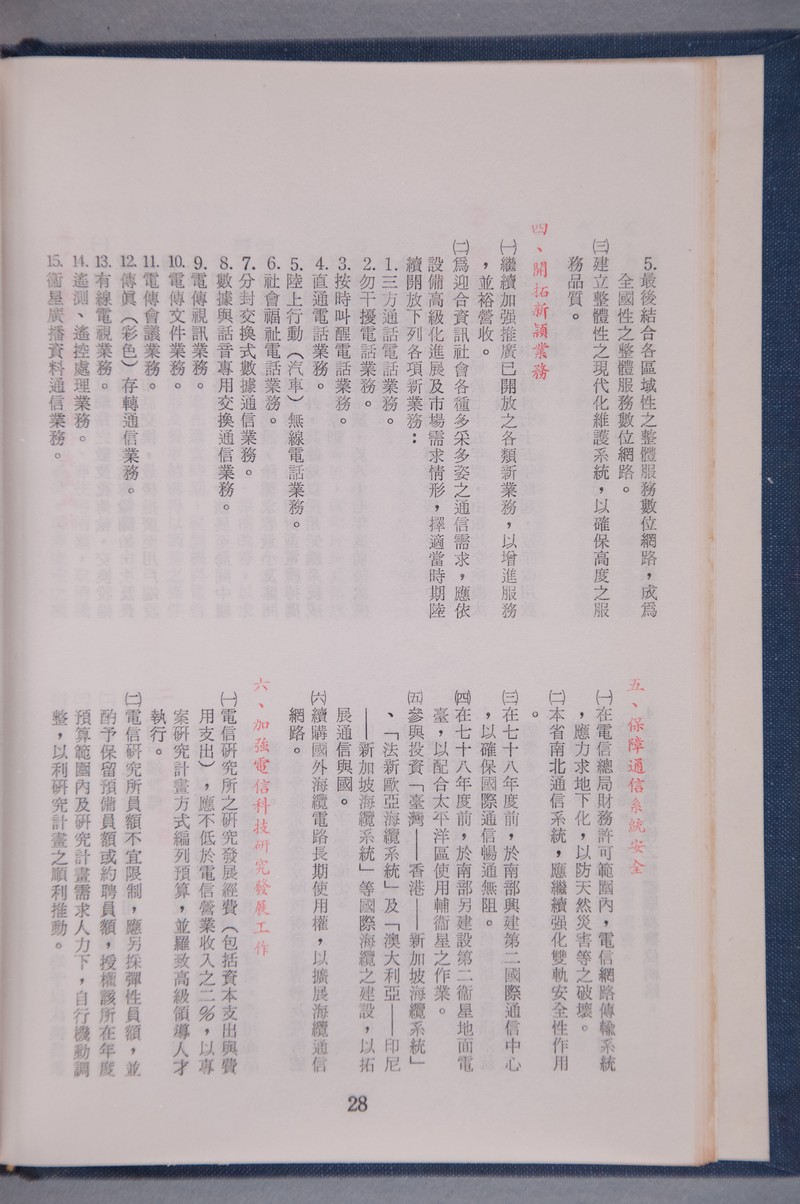 5.最後結合各區域性之整體服務數位網路，成爲
全國性之整體服務數位網路。
㈢建立整體性之現代化維護系統，以確保高度之服
務品質。
四、開拓新穎業務
㈠繼續加强推廣已開放之各類新業務，以增進服務
，並裕營收。
㈡爲迎合資訊社會各種多采多姿之通信需求，應依
設備高級化進展及市場需求情形，擇適當時期陸
續開放下列各項新業務：
1.三方通話電話業務。
2.勿干擾電話業務。
3.按時叫醒電話業務。
4.直通電話業務。
5.陸上行動（汽車）無線電話業務。
6.社會福祉電話業務。
7.分封交換式數據通信業務。
8.數據與話音專用交換通信業務。
9.電傳視訊業務。
10.電傳文件業務。
11.電傳會議業務。
12.傳眞（彩色）存轉通信業務。
13.有線電視業務。
14.遙測、遙控處理業務。
15.衞星廣播資料通信業務。
五、保障通信系統安全
㈠在電信總局財務許可範圍內，電信網路傳輸系統
，應力求地下化，以防天然災害等之破壞。
㈡本省南北通信系統，應繼續强化雙軌安全性作用
。
㈢在七十八年度前，於南部興建第二國際通信中心
，以確保國際通信暢通無阻。
㈣在七十八年度前，於南部另建設第二衞星地面電
臺，以配合太平洋區使用輔衞星之作業。
㈤參與投資「臺灣——香港——新加坡海纜系統」
、「法新歐亞海纜系統」及「澳大利亞——印尼
——新加坡海纜系統」等國際海纜之建設，以拓
展通信與國。
㈥續購國外海纜電路長期使用權，以擴展海纜通信
網路。
六、加強電信科技研究發展工作
㈠電信研究所之研究發展經費（包括資本支出與費
用支出），應不低於電信營業收入之二％，以專
案研究計畫方式編列預算，並羅致高級領導人才
執行。
㈡電信研究所員額不宜限制，應另採彈性員額，並
酌予保留預備員額或約聘員額，授權該所在年度
預算範圍內及研究計畫需求人力下，自行機動調
整，以利研究計畫之順利推動。
28